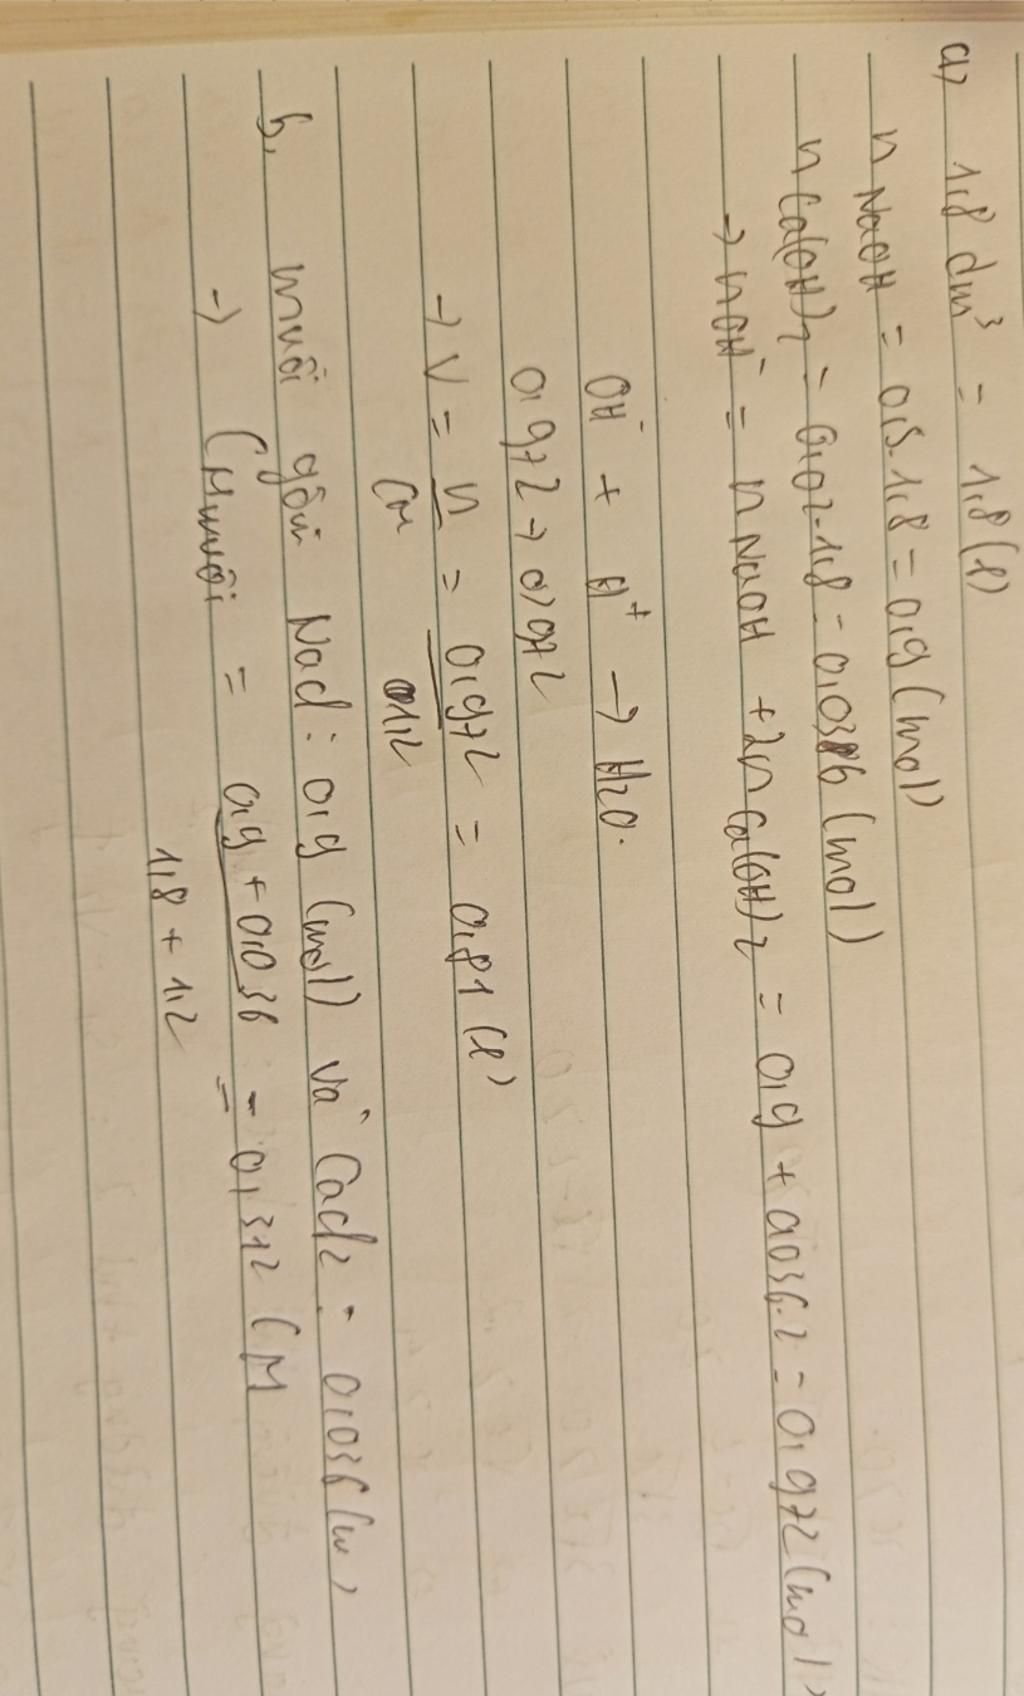 a) 1,8 dm³ = 1,8 (l)
n NaOH = 0,5.1,8 = 0,9 (mol)
n Ca(OH)2 = 0,02.1,8 = 0,036 (mol)
→ nOH⁻ = n NaOH + 2n Ca(OH)2 = 0,9 + 0,036.2 = 0,972 (mol)
OH⁻ + H⁺ → H2O.
0,972 → 0,972
→ V = n/CM = 0,972/1,2 = 0,81 (l)
b, muối gồm NaCl : 0,9 (mol) và CaCl2 : 0,036 (m)
→ CM muối = (0,9 + 0,036)/(1,8 + 1,2) = 0,312 CM